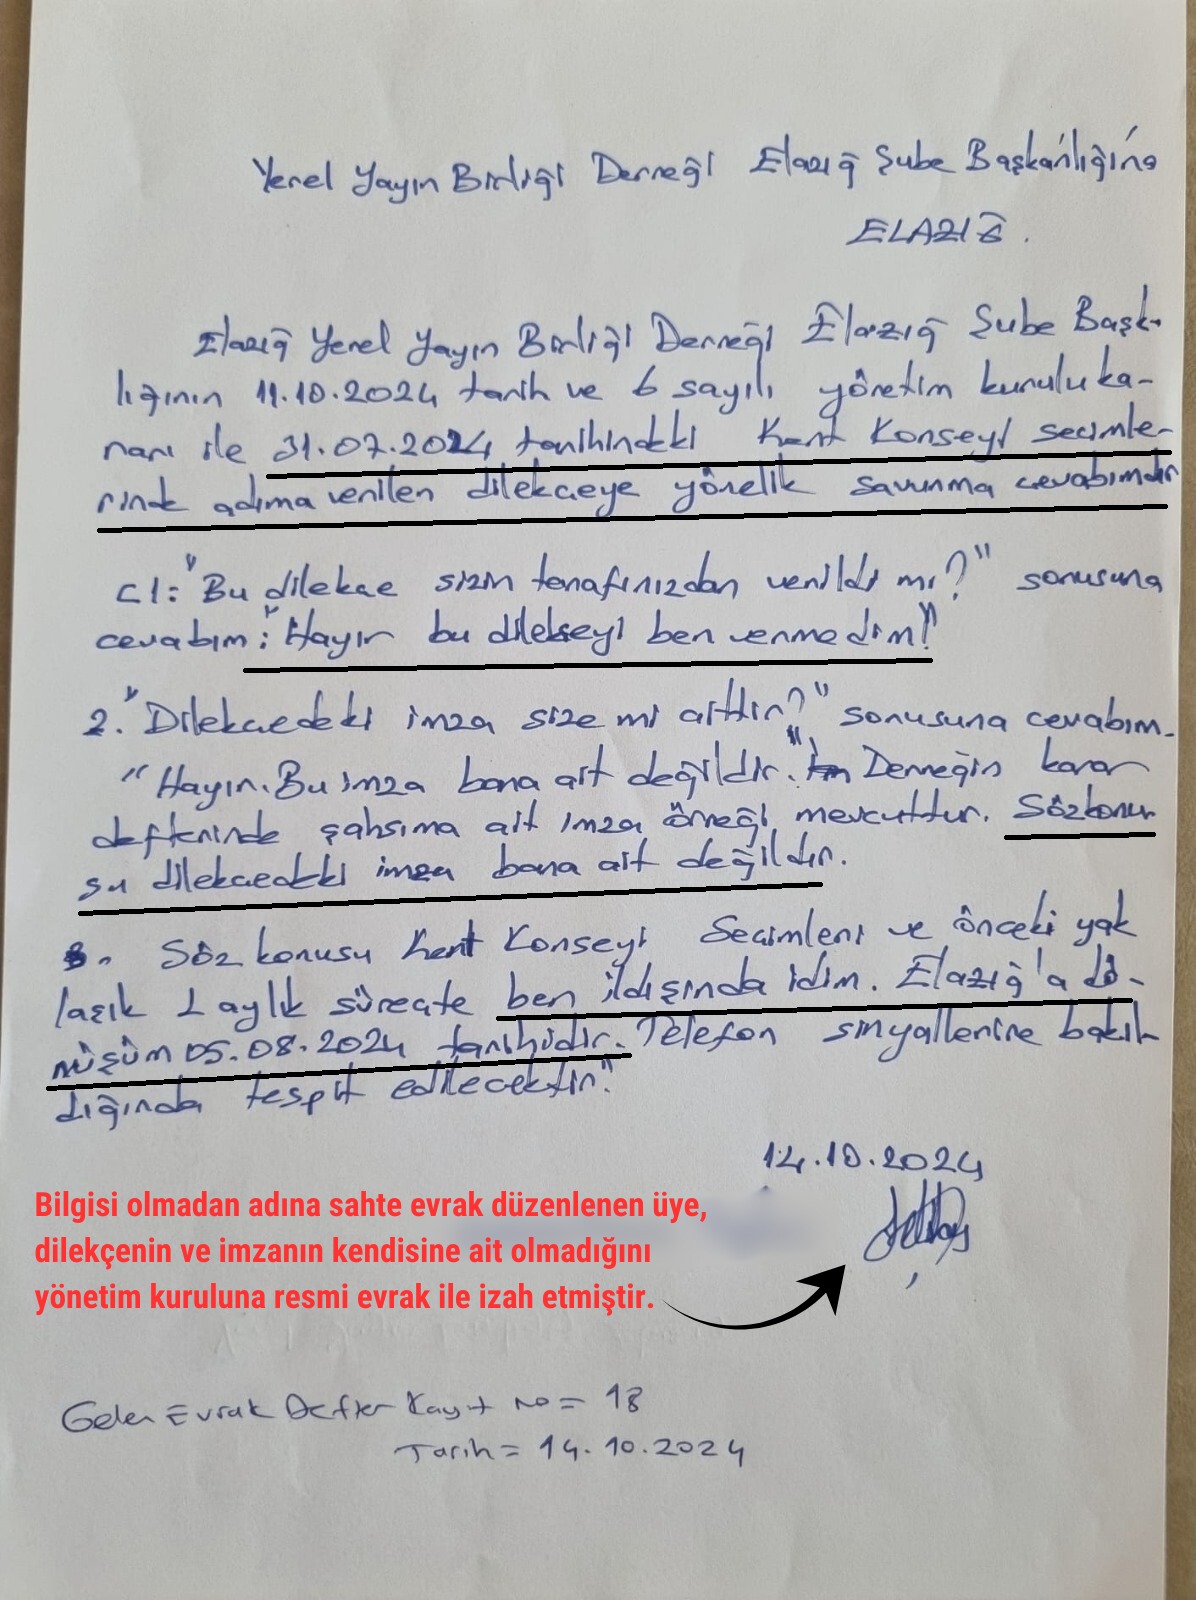 Yerel Yayın Birliği Derneği Elazığ Şube Başkanlığına
ELAZIĞ.
Elazığ Yerel Yayın Birliği Derneği Elazığ Şube Başk-
lığının 11.10.2024 tarih ve 6 sayılı yönetim kurulu ka-
rarı ile 31.07.2024 tarihindeki Kent Konseyi seçimle-
rinde adıma verilen dilekçeye yönelik savunma cevabımdır
C1: "Bu dilekçe sizin tarafınızdan verildi mi?" sorusuna
cevabım: "Hayır bu dilekçeyi ben vermedim!"
2. "Dilekçedeki imza size mi aittir?" sorusuna cevabım.
"Hayır. Bu imza bana ait değildir." Derneğin karar
defterinde şahsıma ait imza örneği mevcuttur. Sözkonu
su dilekçedeki imza bana ait değildir.
3. Söz konusu Kent Konseyi Seçimleri ve önceki yak
laşık 1 aylık süreçte ben ildışında idim. Elazığ'a dö-
nüşüm 05.08.2024 tarihidir. Telefon sinyallerine bakıl-
dığında tespit edilecektir."
14.10.2024
Bilgisi olmadan adına sahte evrak düzenlenen üye,
dilekçenin ve imzanın kendisine ait olmadığını
yönetim kuruluna resmi evrak ile izah etmiştir.
Gelen Evrak Defter Kayıt no = 18
Tarih = 14.10.2024